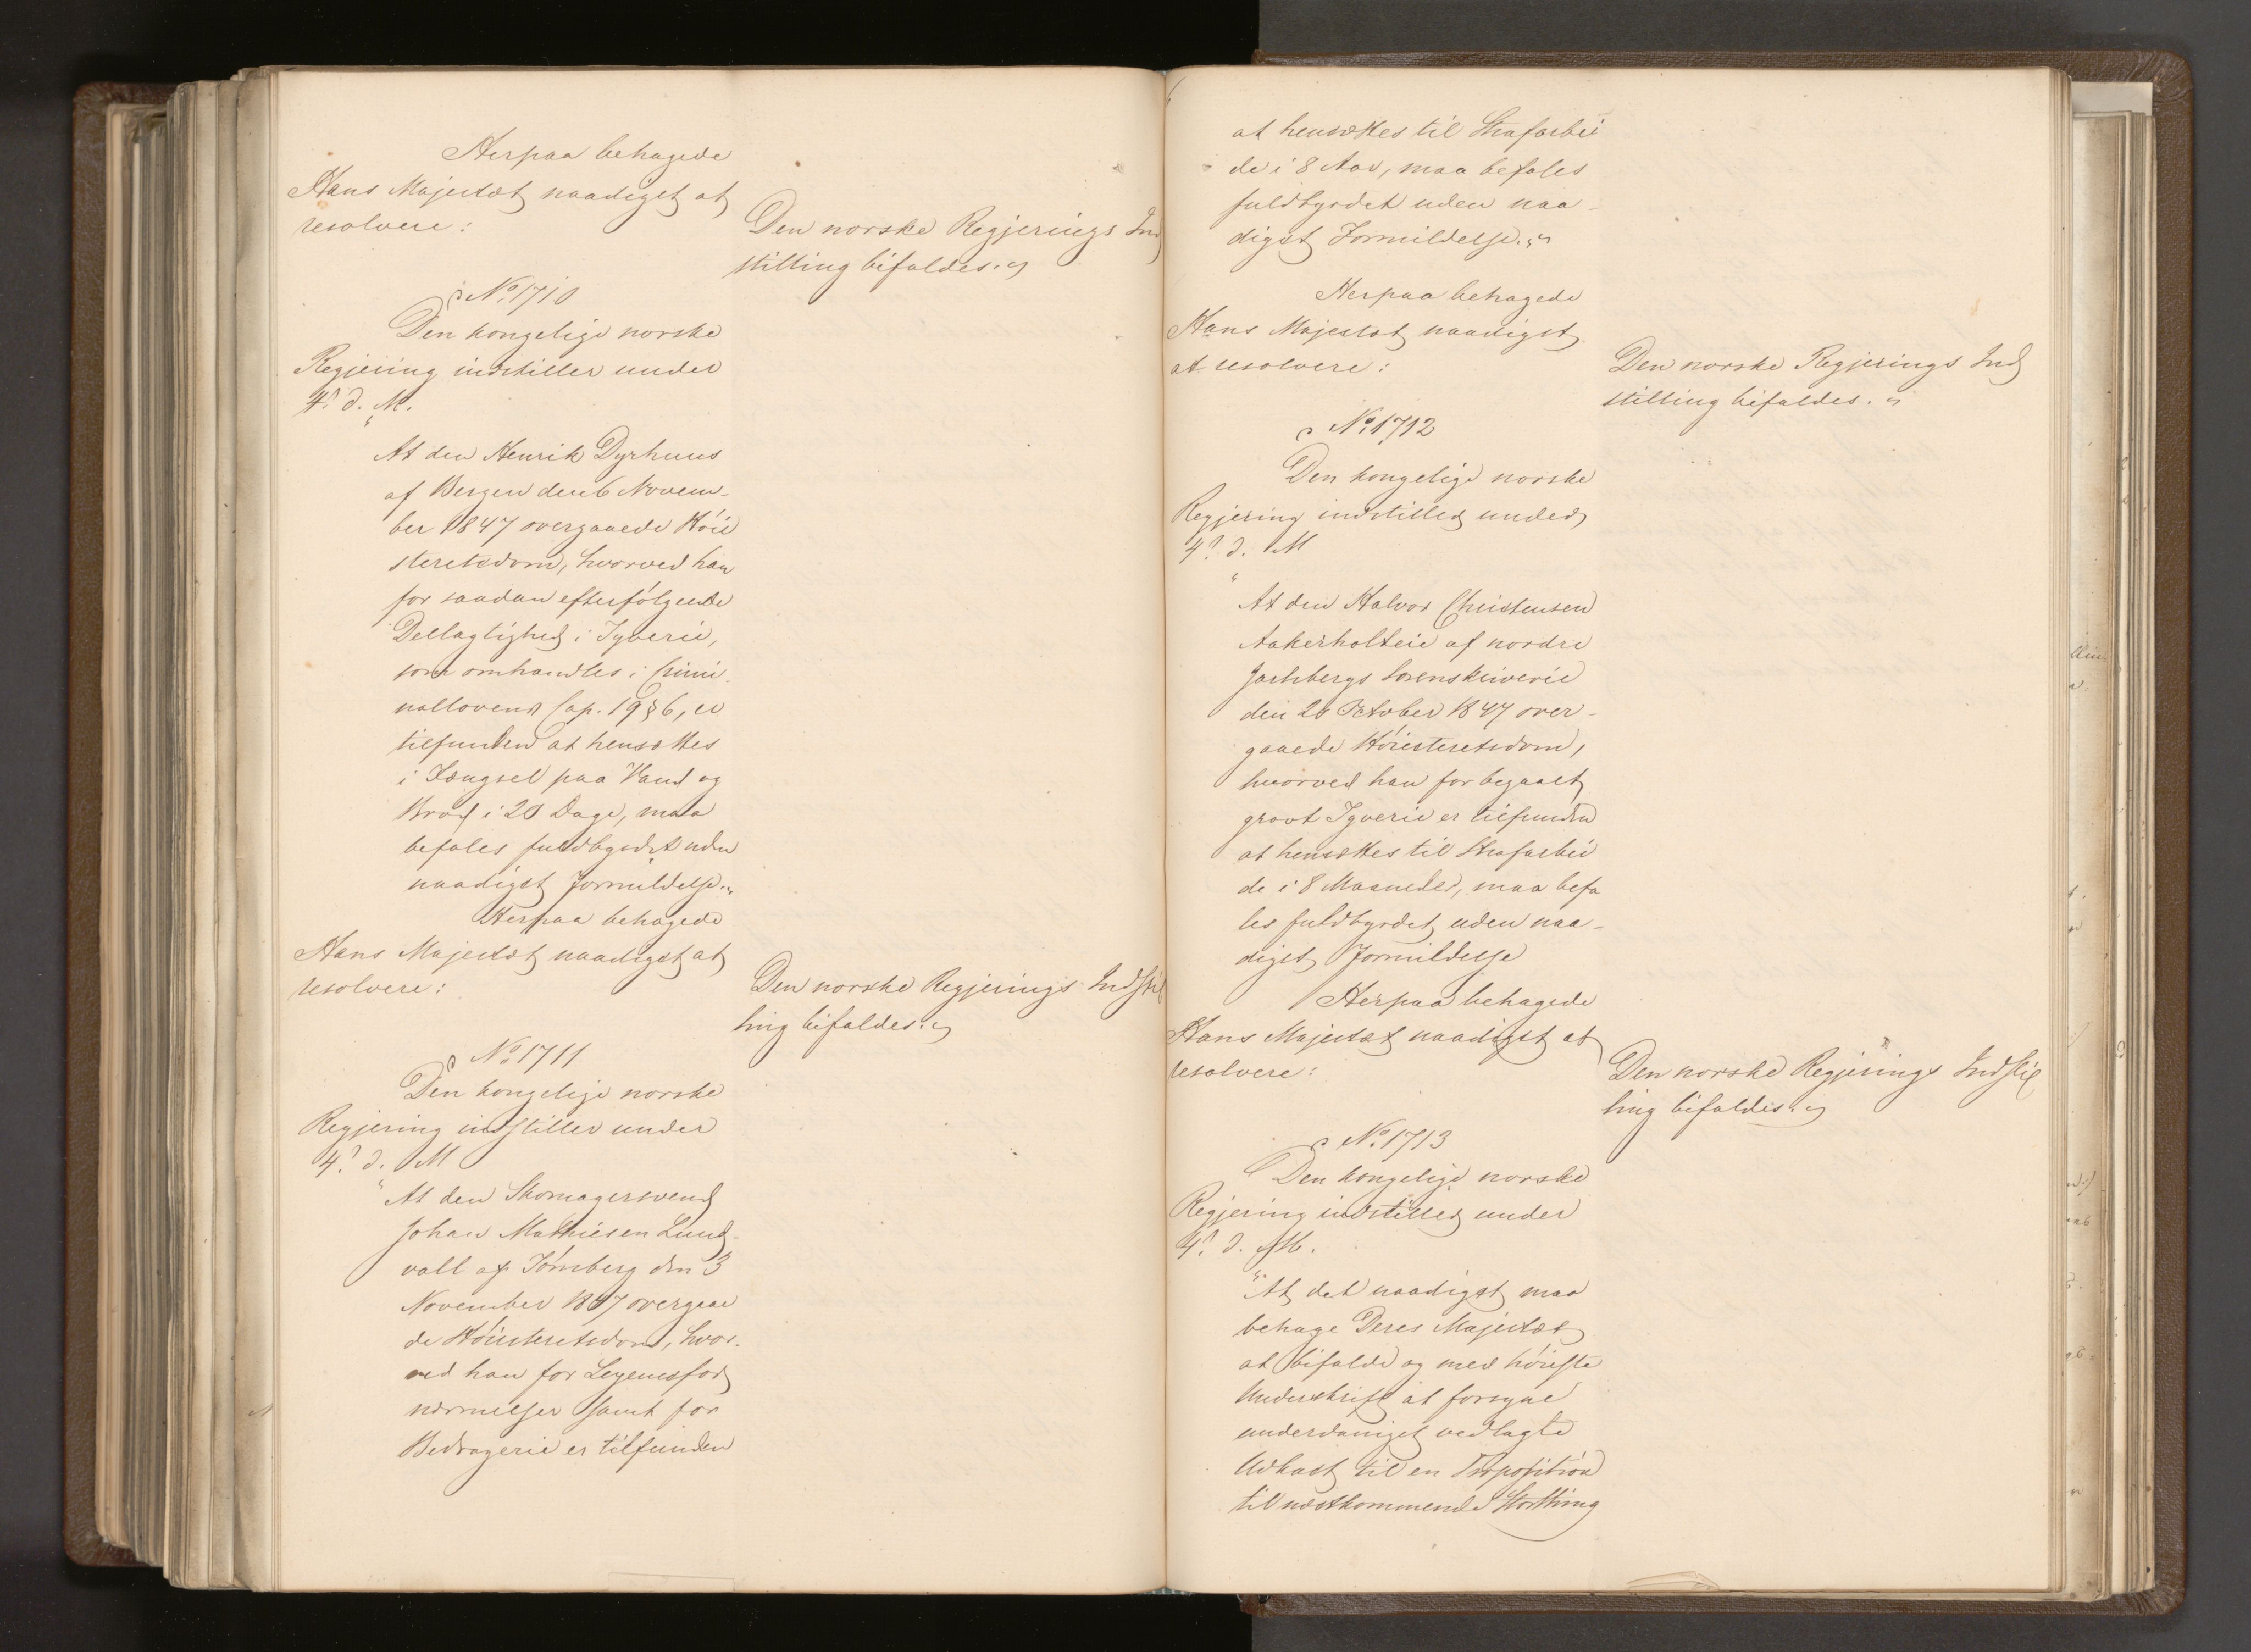 Herpaa behagede
Hans Majestæt naadigst at
resolvere:
Den norske Regjerings Ind
stilling bifaldes."
No 1710
Den kongelige norske
Regjering indstiller under
4de d. M.
"At den Henrik Dyrhuus
af Bergen den 6 Novem-
ber 1847 overgaaede Høie
steretsdom, hvorved han
for saadan efterfølgende
Deelagtighed i Tyverie,
som omhandles i Crimi-
nallovens Cap. 19 § 6, er
tilfunden at hensættes
i Fængsel paa Vand og
Brød i 20 Dage, maa
befales fuldbyrdet uden
naadigst Formildelse."
Herpaa behagede
Hans Majestæt naadigst at
resolvere:
Den norske Regjerings Indstil
ling bifaldes."
No 1711
Den kongelige norske
Regjering indstiller under
4de d. M
"At den Skomagersvend
Johan Mathiesen Lund-
vall af Tønsberg den 3
November 1847 overgaae
de Høiesteretsdom, hvor-
ved han for Legemsfor
nærmelser samt for
Bedragerie er tilfunden
at hensættes til Strafarbei
de i 8 Aar, maa befales
fuldbyrdet uden naa-
digst Formildelse."
Herpaa behagede
Hans Majestæt naadigst
at resolvere:
Den norske Regjerings Ind
stilling bifaldes."
No 1712
Den kongelige norske
Regjering indstiller under
4de d. M
"At den Halvor Christensen
Aakerholteie af nordre
Jarlsbergs Sorenskriverie
den 20 October 1847 over-
gaaede Høiesteretsdom,
hvorved han for begaaet
grovt Tyverie er tilfunden
at hensættes til Strafarbei
de i 8 Maaneder, maa befa
les fuldbyrdet uden naa-
digst Formildelse
Herpaa behagede
Hans Majestæt naadigst at
resolvere:
Den norske Regjerings Indstil
ling bifaldes."
No 1713
Den kongelige norske
Regjering indstiller under
4de d. M.
"At det naadigst maa
behage Deres Majestæt
at bifalde og med høieste
Underskrift at forsyne
underdanigst vedlagte
Udkast til en Proposition
til næstkommende Storthing